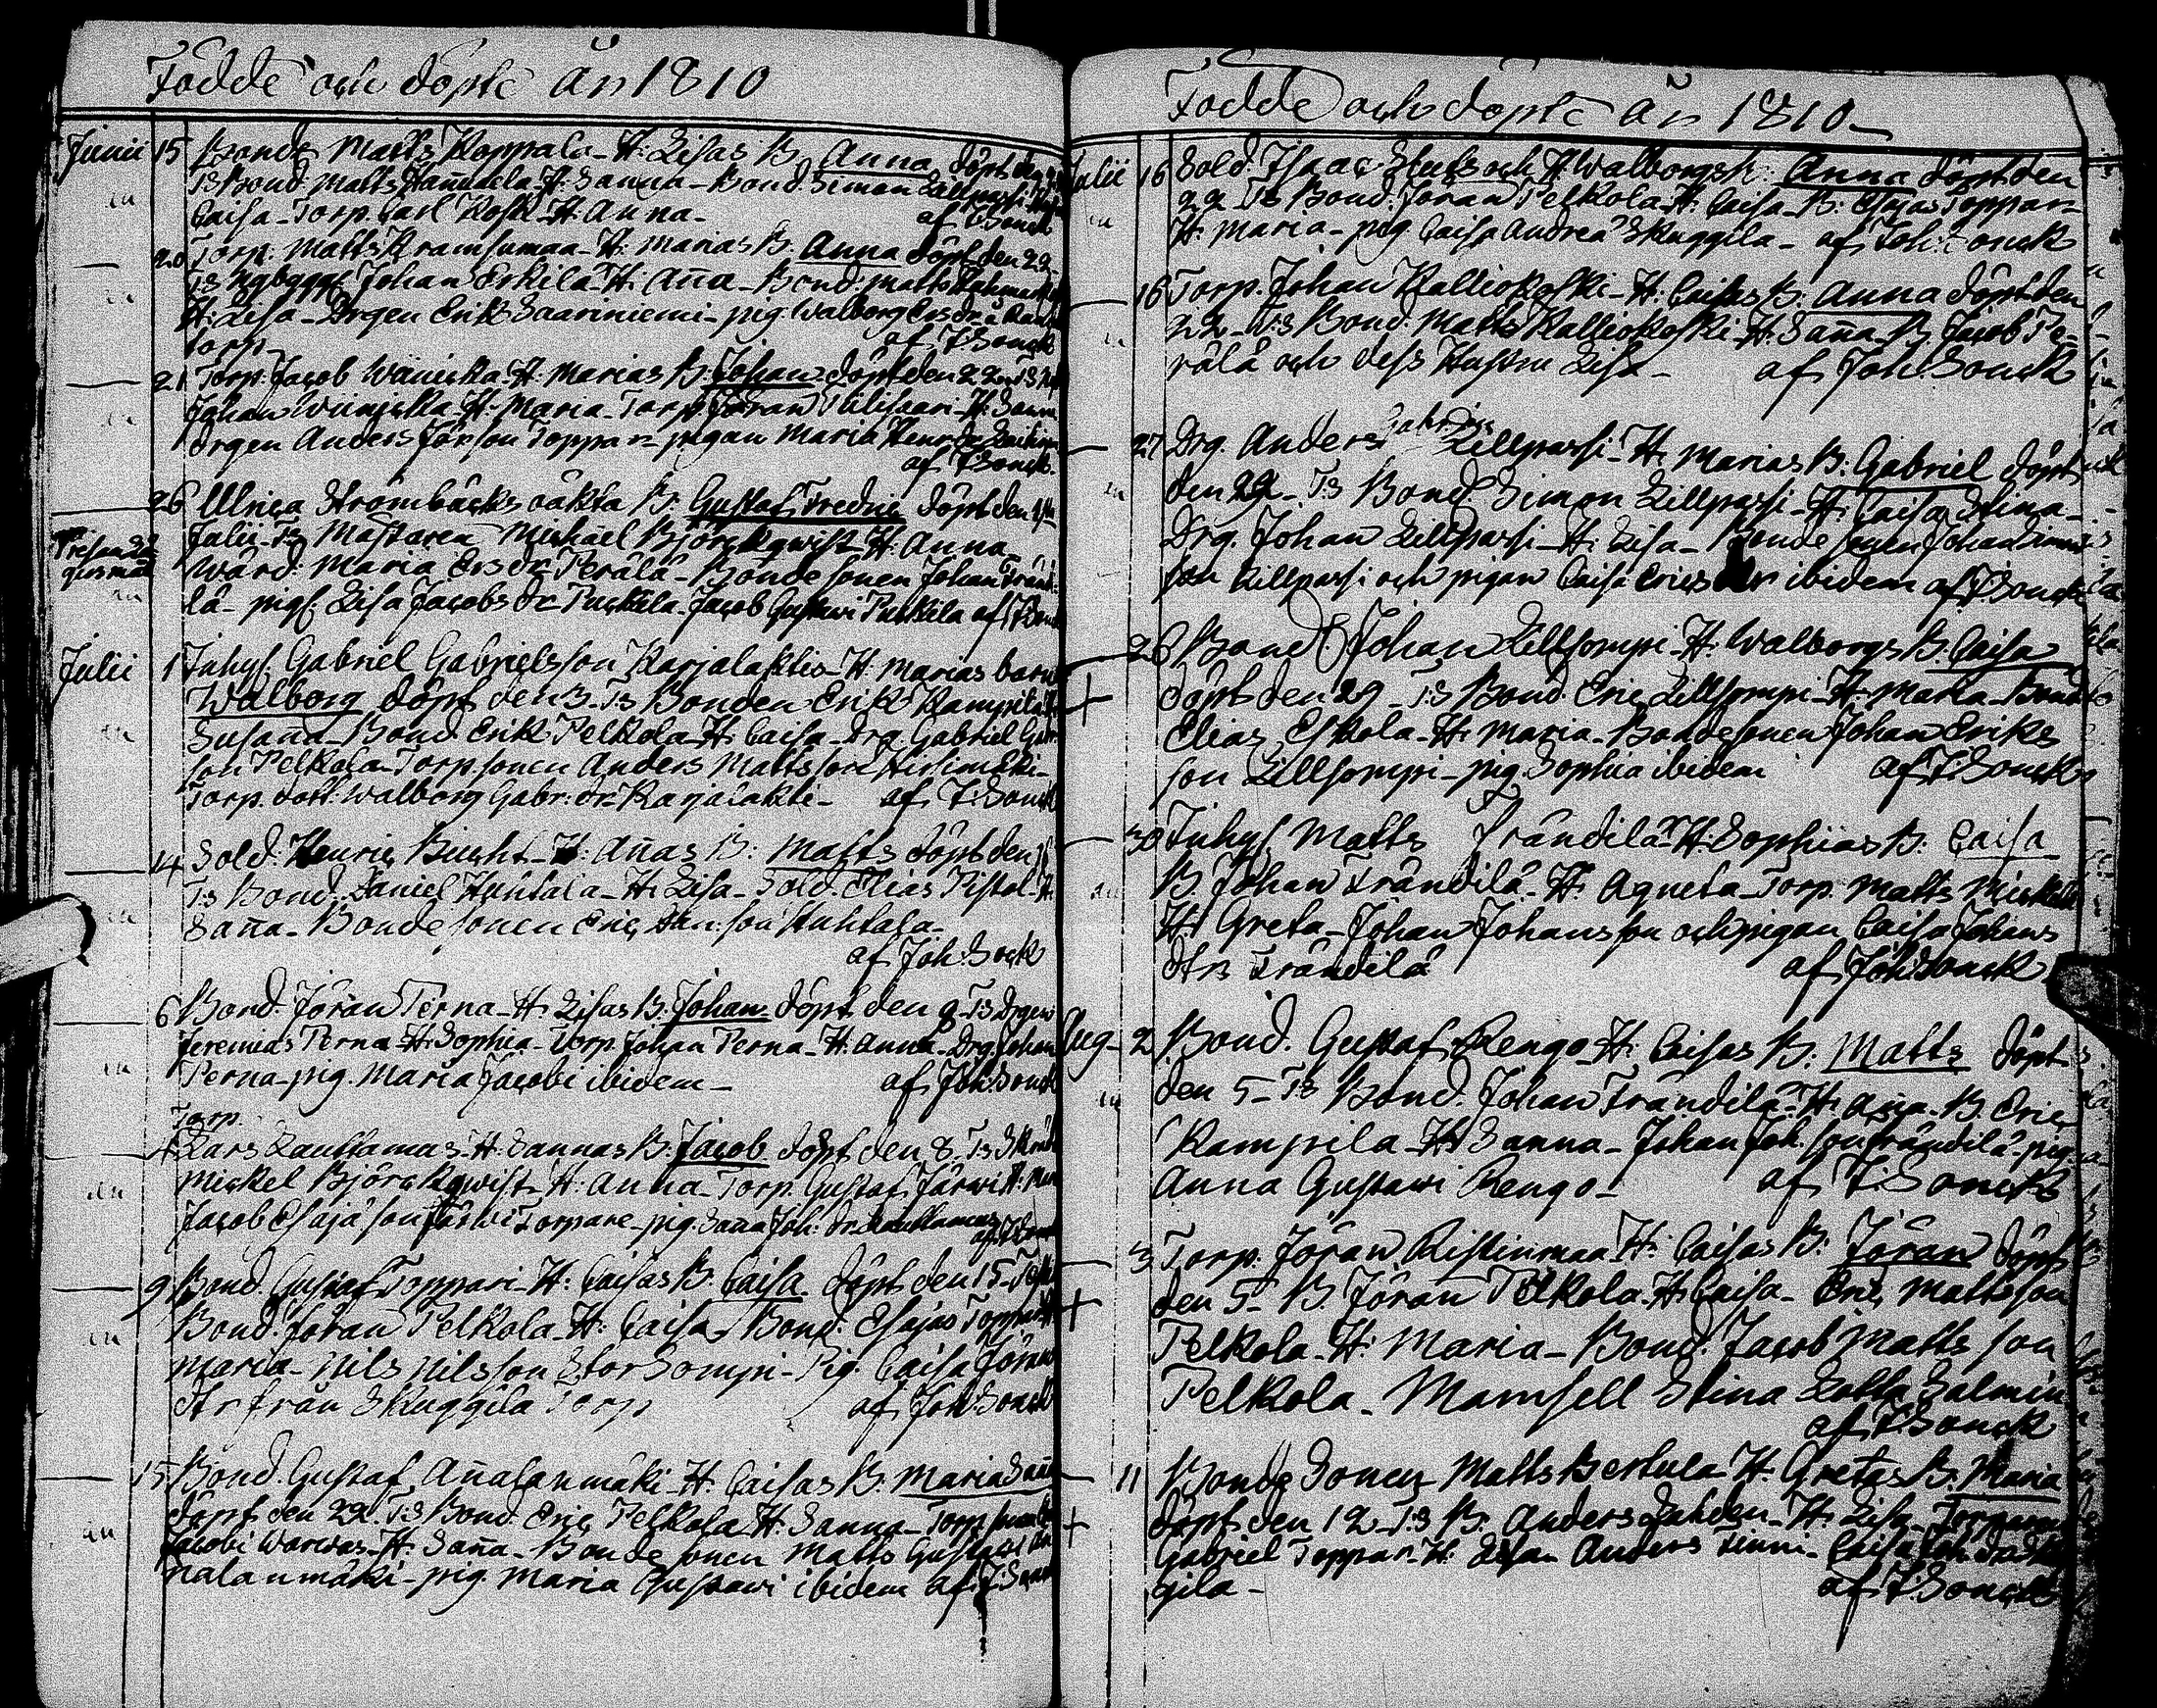 Födde och döpte år 1810
Junii 15 Bond. Matts Koppala - H: Lisas B. Anna döpt den
T:s Bond. Matts Hañukela - H: Sanna - Bond. Simon Lillpassi
Caisa - Torp. Carl Kosk - H. Anna - af Sonck
20 Torp. Matts Kramsumaa - H: Marias B. Anna döpt den 22
T:s Nybygg. Johan Erkilä - H: Aña - Bond. Matts
H: Lisa - Drgen Erik Saariniemi - pig. Walborg Ersdr
torp - af J Sonck
21 Torp. Jacob Wäinicka - H: Marias B. Johan döpt den 22 - T:s
Johan Wiinicka - H. Maria - Torp. Jöran Pilisaari - H:
Drgen Anders Jörsson Toppar - pigan Maria
af J Sonck
26 Ulrica Strömbäcks oäkta B: Gustaf Fredric döpt den
Julii - T:s Mästaren Michael Björckqwist - H. Anna -
Wärd: Maria Ersdr Perälä - Bondesonen Johan Frändi-
lä - pig. Lisa Jacobs dr Puckila - Jacob Gustavi Puckila af J Sonck
Julii 1 Inhys. Gabriel Gabrielsson Karjalaktis - H: Marias barn
Walborg döpt den 3 - T:s Bonden Erik Kampila
Susaña - Bond. Erik Pelkola - H. Caisa - Drg. Gabriel
son Pelkola - Torp. sonen Anders Mattsson
Torp. dott: Walborg Gabr: dr Karjalakti - af J Sonck
14 Sold. Henric Bucht - H: Añas B: Matts döpt den
T:s Bond. Daniel Huhtala - H: Lisa - Sold. Elias Pistol - H.
Saña - Bondesonen Eric Hen: son Huhtala -
af Joh: Sonck
6 Bond. Jöran Perna - H: Lisas B. Johan döpt den 8 - T:s Drgen
Jeremias Perna - H: Sophia - Torp. Johan Perna - H: Anna - Drg. Johan
Perna - pig. Maria Jacobi ibidem - af Joh: Sonck
Torp.
4 Lars Lauttamus - H: Sannas B: Jacob döpt den 8 - T:s
Mickel Björckqwist - H: Anna - Torp. Gustaf Järwi H:
Jacob Esajæ son Järwi Torpare - pig. Saña Joh: dr Lauttamus
af J Sonck
9 Bond. Gustaf Toppari - H: Caisas B. Caisa döpt den 15 -
Bond. Jöran Pelkola - H: Caisa - Bond. Esajas Toppari H.
Maria - Nils Nilsson Storsompi - Pig. Caisa Jörans
dr från Skuggila Torp af Joh: Sonck
15 Bond. Gustaf Añalanmäki - H: Caisas B. Maria
döpt den 22. T:s Bond. Eric Pelkola H: Sanna - Torp.
Jacobi Warwas - H: Saña - Bondesonen Matts Gustavi
nalanmäki - pig. Maria Gustawi ibidem af J Sonck
Födde och döpte år 1810
Julii 16 Sold. Isaac Stuts och H. Walborgs B: Anna döpt den
22 T:s Bond. Jöran Pelkola - H: Caisa - B: Esajas Toppar
H. Maria - pig. Caisa Andreæ Skuggila - af Joh: Sonck
16 Torp. Johan Kalliokoski - H: Caisas B: Anna döpt den
22 - T:s Bond. Matts Kalliokoski - H: Saña - B. Jacob Pe-
rälä och dess Hustru Lisa - af Joh. Sonck
27 Drg. Anders Gabr. son Lillpassi - H: Marias B: Gabriel döpt
den 29 - T:s Bond. Simon Lillpassi - H: Caisa Stina -
Drg. Johan Lillpassi - H: Lisa - Bondesonen Johan Simons
son Lillpassi och pigan Caisa Erics dr ibidem af J Sonck
28 Bond. Johan Lillsompi - H: Walborgs B. Caisa
döpt den 29 - T:s Bond. Eric Lillsompi - H: Maria - Bond
Elias Eskola - H: Maria - Bondesonen Johan Eriks
son Lillsompi - pig. Sophia ibidem af J Sonck
30 Inhys. Matts Frändilä - H: Sophias B: Caisa
B. Johan Frändilä - H: Agneta - Torp. Matts
H: Greta - Johan Johansson och pigan Caisa Johans
dtr Frändilä af Joh: Sonck
Aug - 2 Bond. Gustaf Rengo - H: Caisas B: Matts döpt
den 5 - T:s Bond. Johan Frändilä - H: Aña - B. Eric
Kampila - H: Sanna - Johan Joh. son Frändilä - pig.
Anna Gustawi Rengo - af J. Sonck
3 Torp. Jöran Ristinmaa H: Caisas B: Jöran döpt
den 5 - B. Jöran Pelkola - H: Caisa - Eric Mattsson
Pelkola - H: Maria - Bond. Jacob Matts son
Pelkola - Mamsell Stina Lotta Salmin
af J. Sonck
11 Bonde Sonen Matts Bertula H: Gretas B: Maria
döpt den 12 - T:s B. Anders Lahden - H. Lisa -
Gabriel Toppar - H: Lisa - Anders Finni - Caisa
gila - af J. Sonck